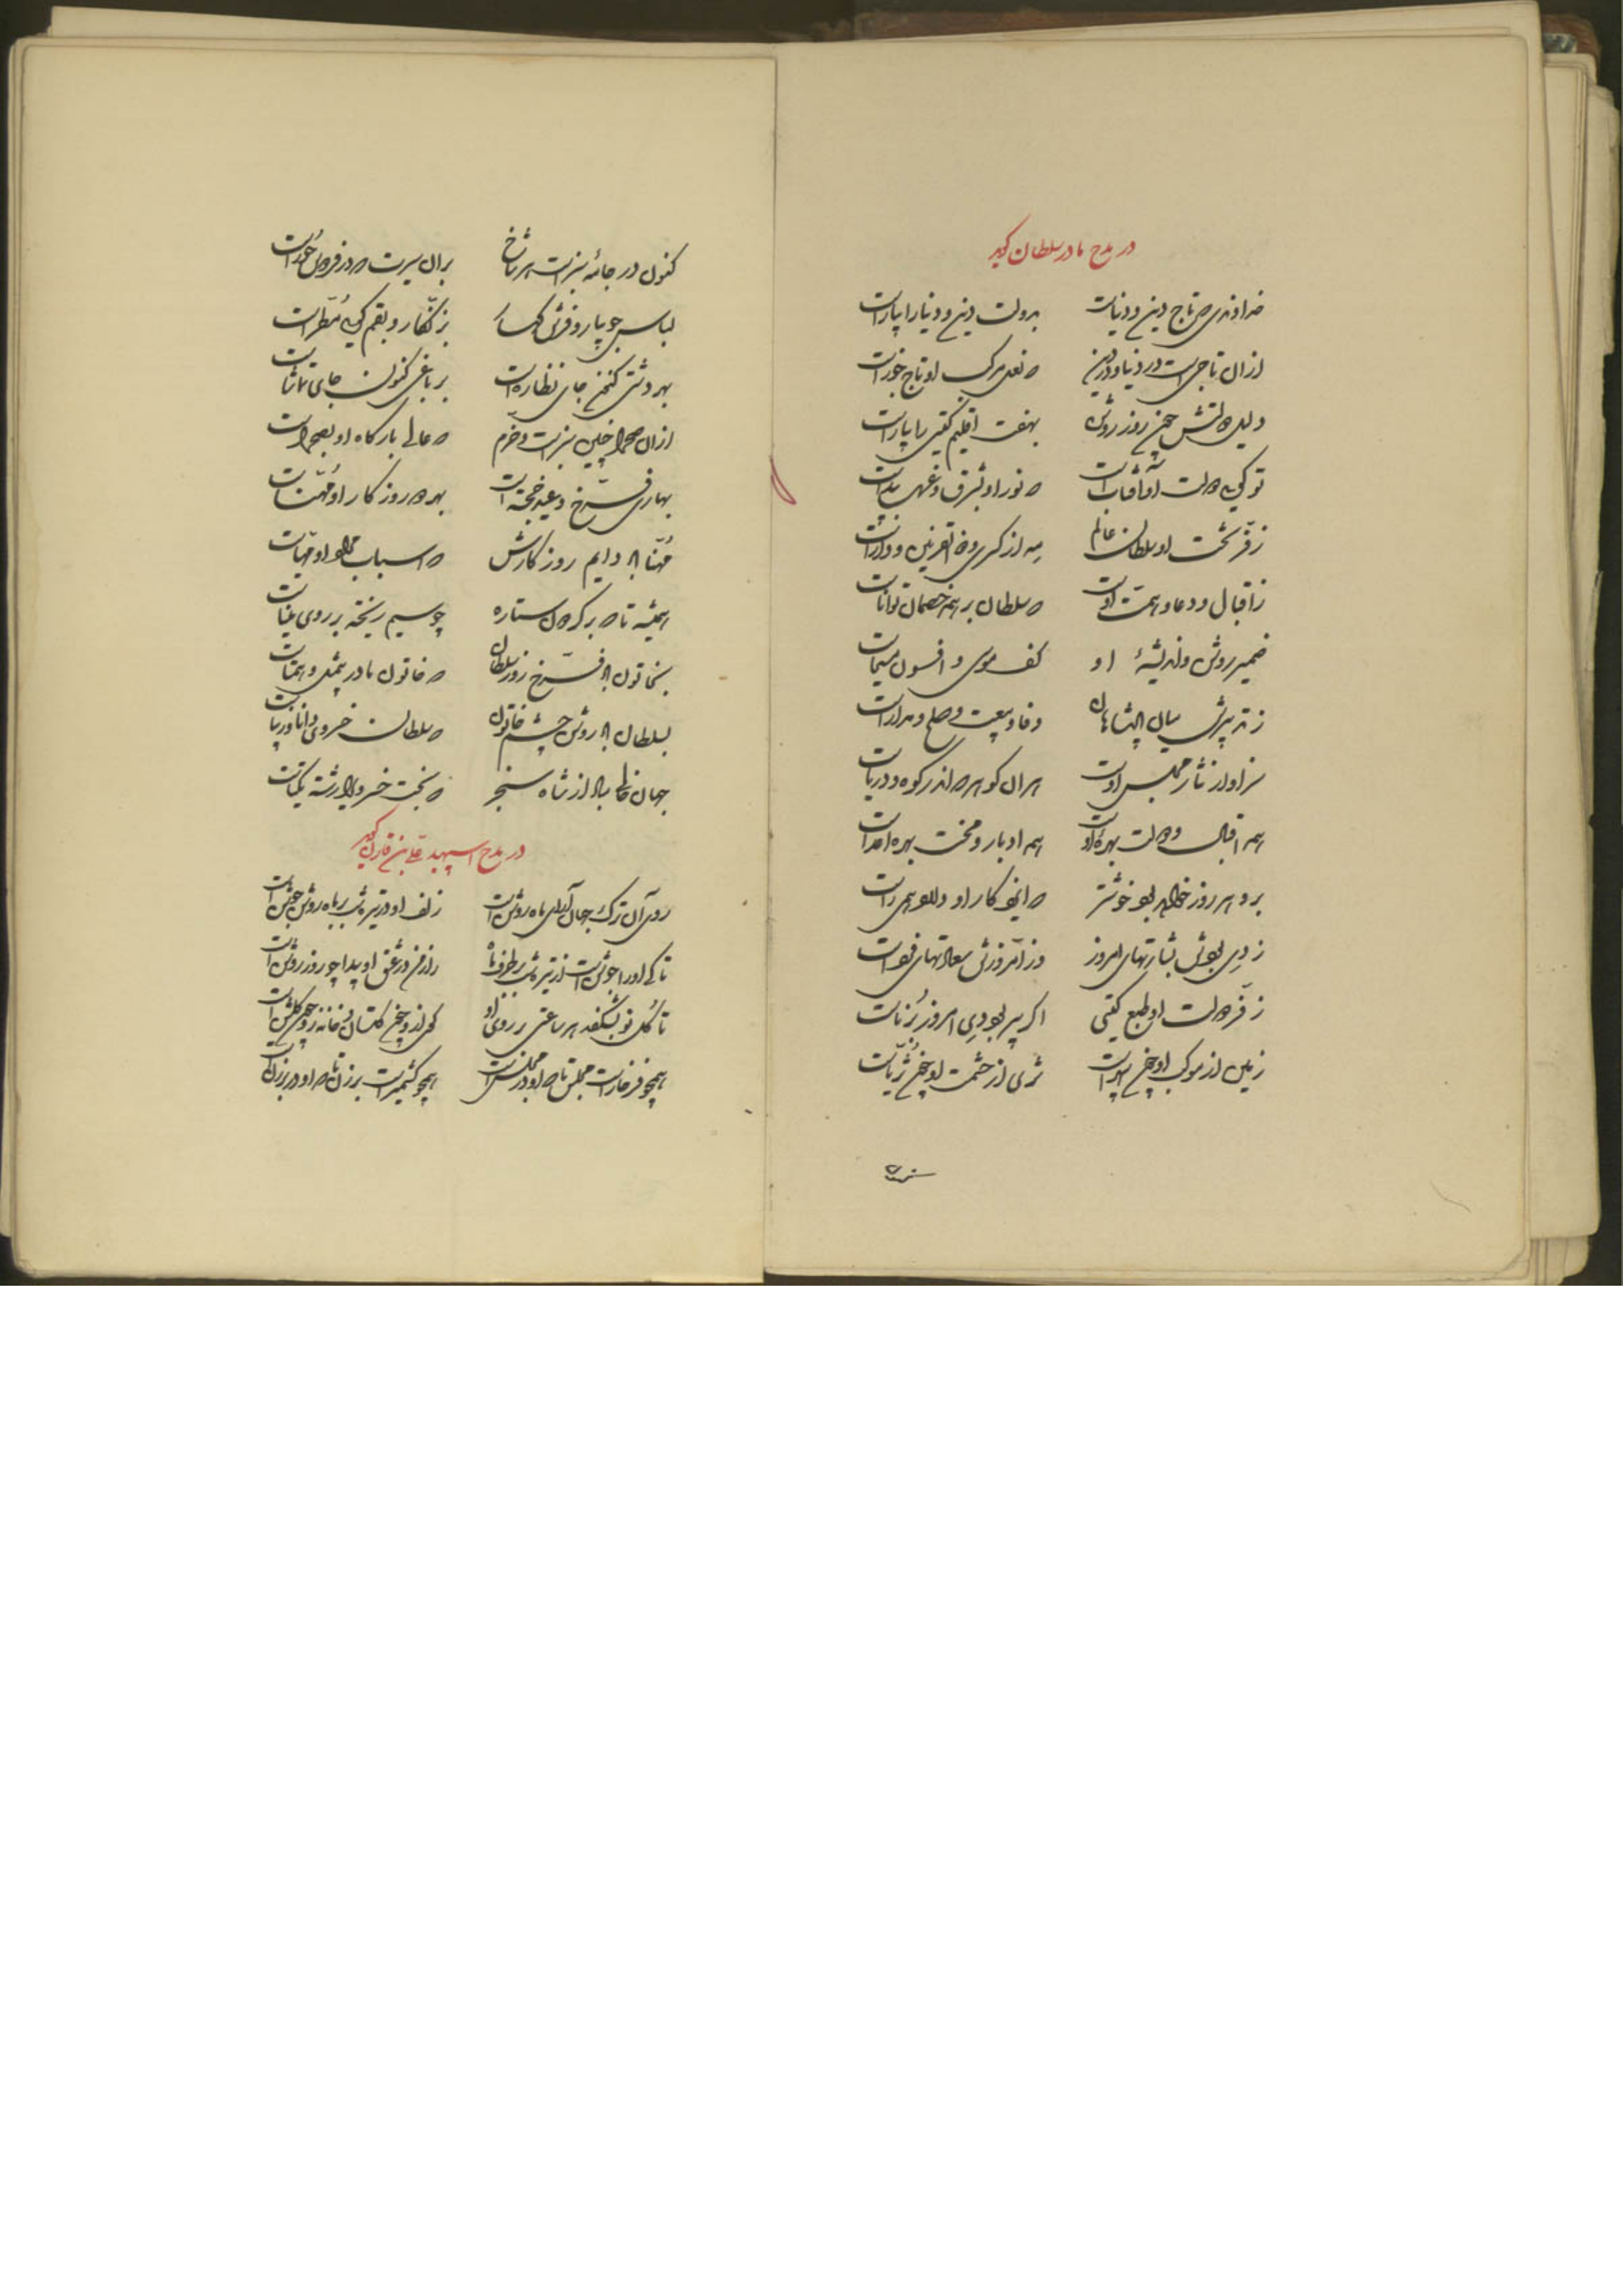 در مدح مادر سلطان گوید
خداوندی که تاج دین و دنیاست بدولت دین و دنیا را بیاراست
ازان تاجی است در دنیا و در دین که نعل مرکب او تاج جوزاست
دلیل دولتش چون روز روشن بهفت اقلیم گیتی را بیاراست
تو گوئی دولت او آفتابست که نور او بشرق و غرب پیداست
ز فر بخت او سلطان عالم به از کسری و ذوالقرنین و داراست
ز اقبال و دعا و همت اوست که سلطان بر همه خصمان تواناست
ضمیر روشن و اندیشهٔ او کف موسی و افسون مسیحاست
ز تدبیرش میان پادشاهان وفا و بیعت و صلح و مداراست
سزاوار نثار مجلس اوست هر آن گوهر که اندر کوه و دریاست
همه اقبال و دولت بهرهٔ اوست همه ادبار و محنت بهر اعداست
برو هر روز خواهد بود خوشتر که ایزد کار او داند همی راست
ز دی بودش بشارتهای امروز وز امروزش سعادتهای فرداست
ز فر دولت او طبع گیتی اگر پیر بود دی امروز برناست
زمین از موکب او چون سپهرست ثری از حشمت او چون ثریاست
کنون در جامهٔ سبزست هر شاخ بران سیرت که در فردوس حوراست
لباس جویبار و فرش کهسار ز زنگار و بقم گوئی مطراست
بهر دشتی کنون جای نظاره است بر باغی کنون جای تماشاست
ازان صحرا چنین سبزست و خرم که عالی بارگاه او بصحراست
بهاری فرخ و عید خجسته است بهر دو روزگار او مهناست
مهنا باد دایم روزگارش که اسباب مراد او مهیاست
همیشه تا که بر گردون ستاره چو سیم ریخته بر روی میناست
بخاتون باد فرخ روز سلطان که خاتون مادر بیمثل و همتاست
بسلطان باد روشن چشم خاتون که سلطان خسروی دانا و زیباست
جهان خالی مباد از شاه سنجر که بخت خسرو والا رشته یکتاست
در مدح اسپهبد علی بن قارن گوید
روی آن ترک جهان آرای ماه روشن است زلف او در تیره شب بر ماه روشن جوشن است
تا که او را جوشن است از تیره شب بر طرف ماه راز من در عشق او پیدا چو روز روشن است
تا گل نو بشکفد هر ساعتی بر روی او کوی ازو چون گلستان و خانه زو چون گلشن است
همچو فرخارست مجلس تا که او در مجلس است همچو کشمیرست برزن تا که او در برزن است